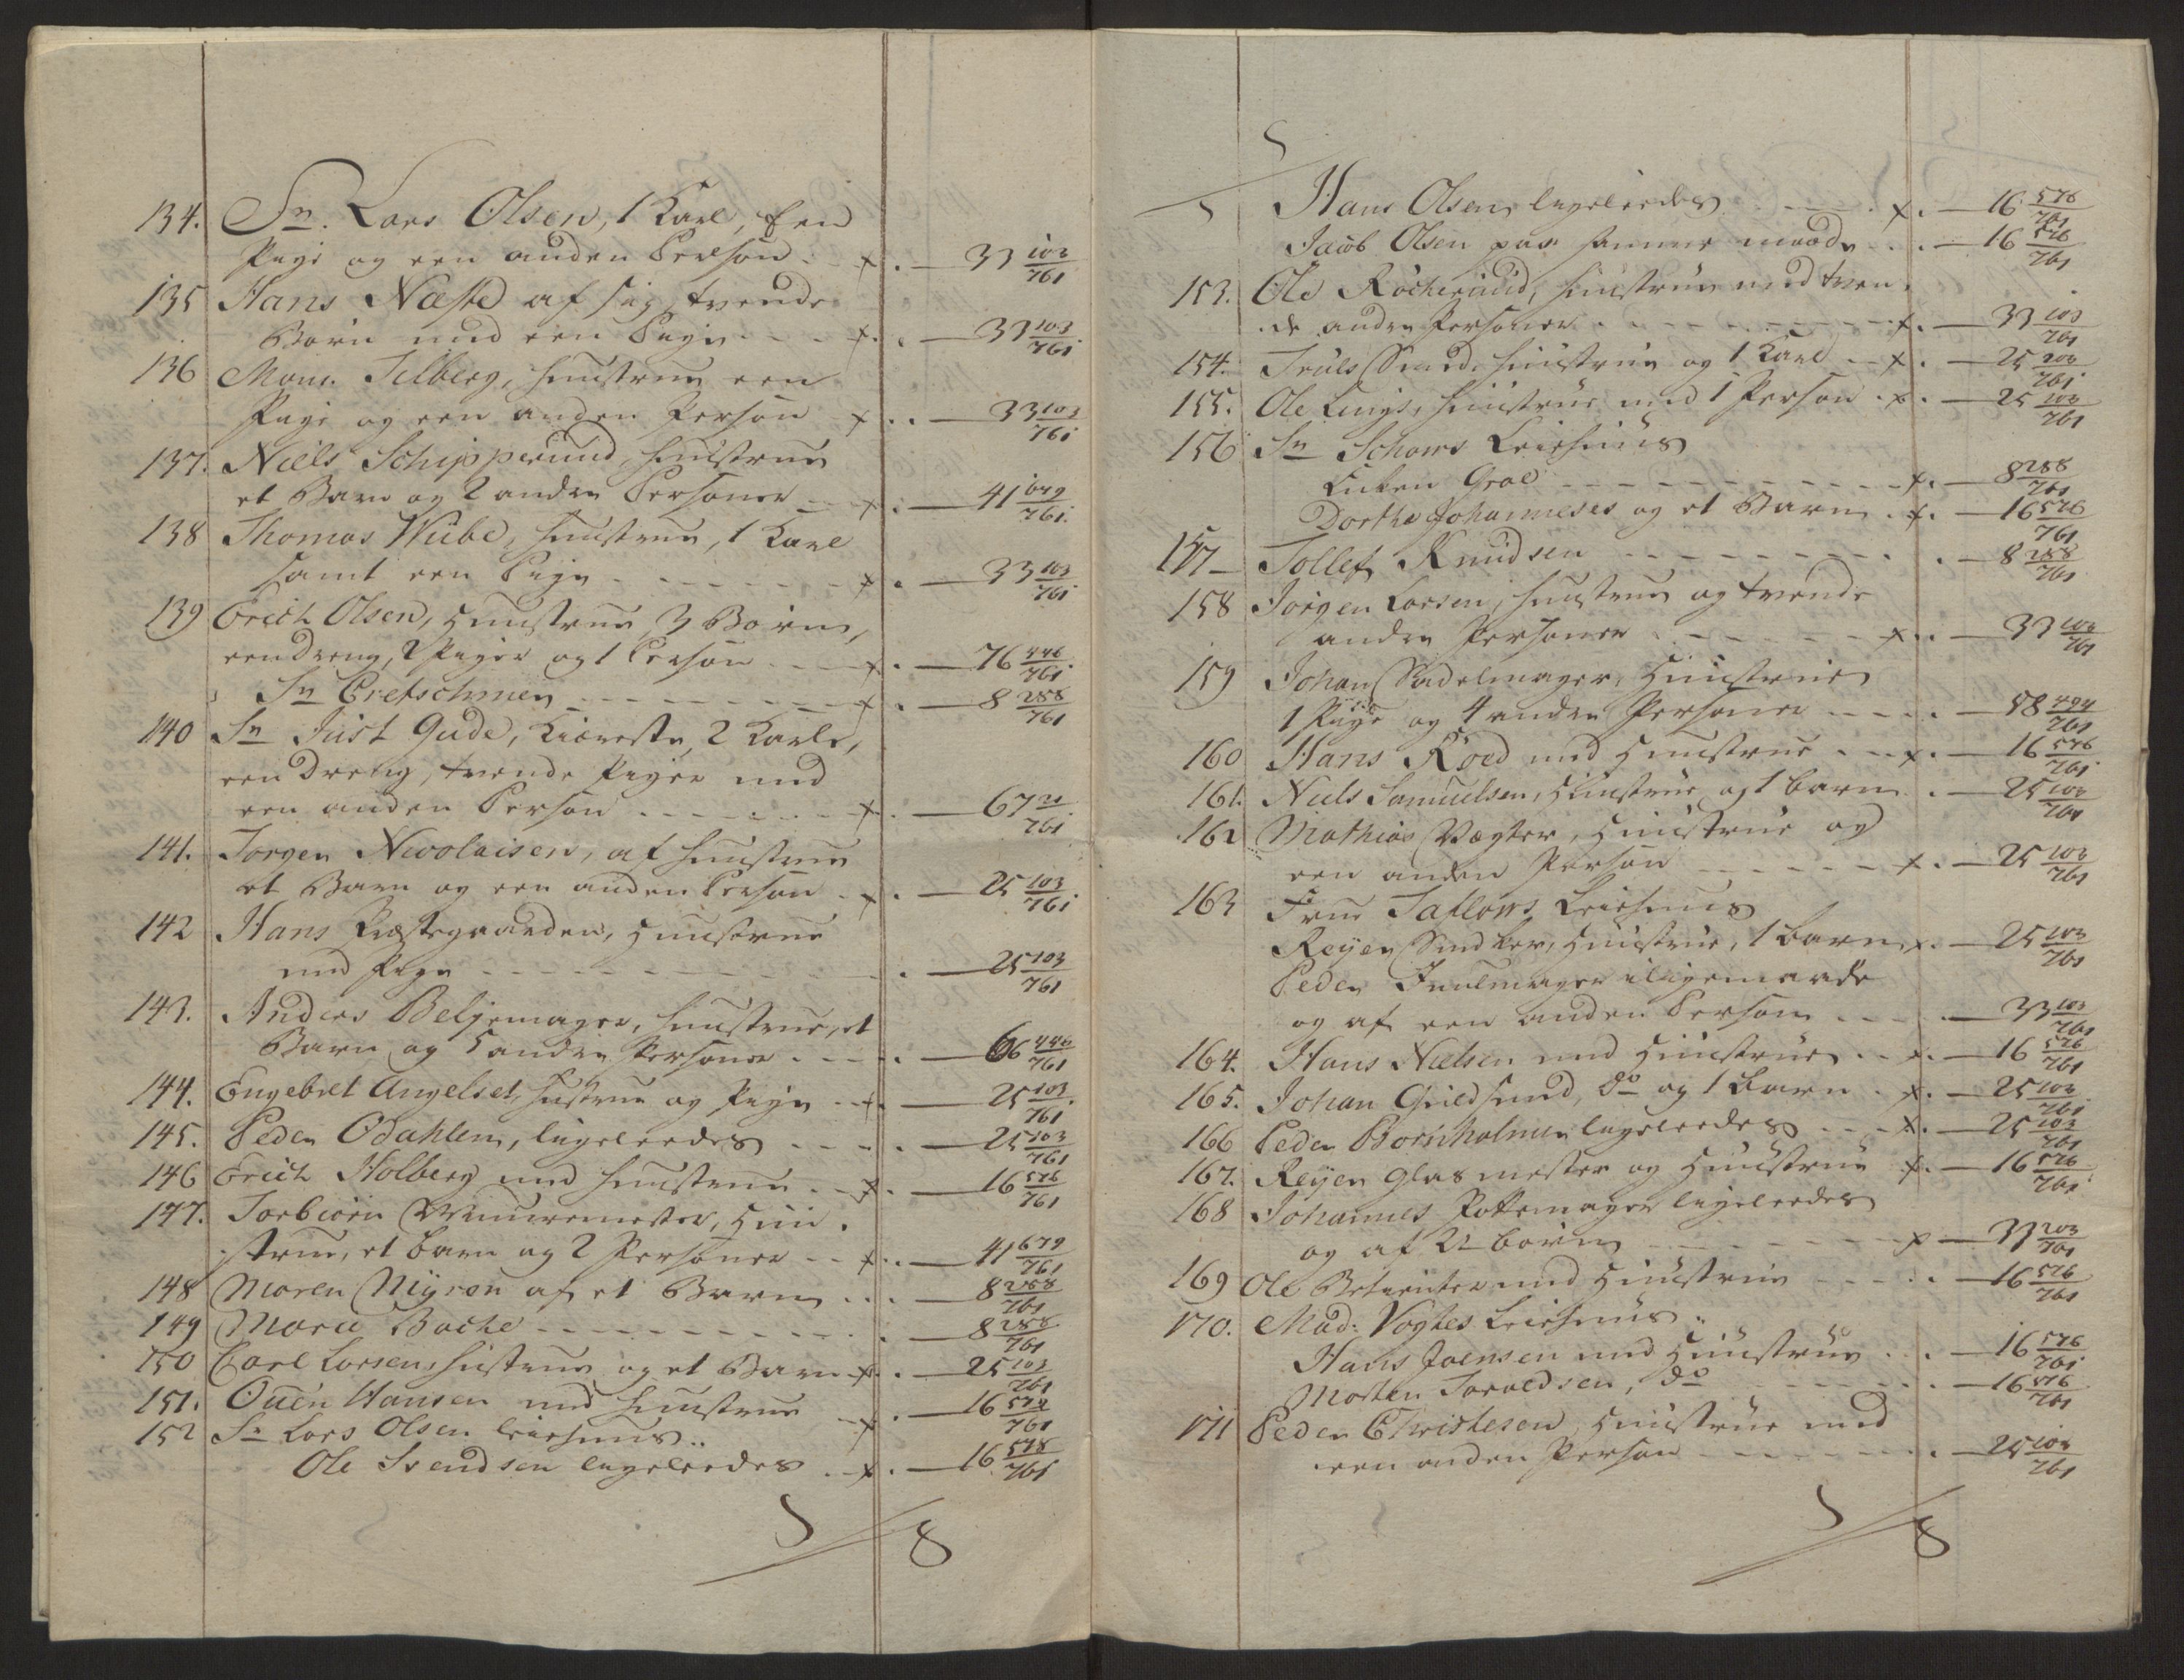 134. Sr. Lars Olsen, 1 Karl, Een
Pige og een anden Person . x . — 33 103/761
135 Hans Næste af sig, tvende
Børn med een Pige . . . x . — 33 103/761
136 Mons. Tilberg, Huustrue een
Pige og een anden Person x . . — 33 103/761
137. Niels Schipperund, Huustrue
et Barn og 2 andre Personer x . — 41 679/761
138 Thomas Wübe, Huustrue, 1 Karl
samt een Pige . . . . x . — 33 103/761
139 Erich Olsen, Huustrue, 3 Børn,
een dreng, 2 Piger og 1 Person . . x . — 76 446/761
Sr Cretschmer . . . . x . — 8 288/761
140 Sr Just Gude, Kiæreste, 2 Karle,
een Dreng, tvende Piger med
een anden Person . . . . x . — 67 21/761
141. Jorgen Nicolaisen, af Huustrue
et Barn og een anden Person . x . — 25 103/761
142 Hans Præstegaarden, Huustrue
med Pige . . . . — 25 103/761
143. Anders Beljemager, Huustrue, et
Barn og 5 andre Personer . . . — 66 446/761
144. Engebret Angelset, Hustrue og Pige . x . — 25 103/761
145. Peder Odahlen, ligeleedes . . . — 25 103/761
146 Erich Holberg med Huustrue . . x . — 16 576/761
147. Torbiørn Muuremester, Huu-
strue, et barn og 2 Personer . . x . . — 41 679/761
148 Maren Myren af et Barn . . . — 8 288/761
149 Maria Bache . . . . — 8 288/761
150 Carl Larsen, Hustrue og et Barn x . — 25 103/761
151. Ouen Hansen med Huustrue x . — 16 576/761
152 Sr Lars Olsen Leiehuus . . x
Ole Svendsen ligeleedes . x . — 16 576/761
Hans Olsen ligeleedes . . . x . — 16 576/761
Jacob Olsen paa samme maade . . — 16 576/761
153. Ole Röcherund, Huustrue med tven-
de andre Personer . . . . x . — 33 103/761
154. Truls Smed, Huustrue og 1 Karl . . x . — 25 103/761
155. Ole Lunge, Huustrue med 1 Person . x . — 25 103/761
156 Sr Schows Leiehuus
Enken Groe . . . . x . — 8 288/761
Dorthe Johannesis og et Barn . x . — 16 576/761
157 — Tollef Knudsen . . . . — 8 288/761
158 Jørgen Larsen, Huustrue og tvende
andre Personer . . . . x . . — 33 103/761
159 Johan Sadelmager, Huustrue
1 Pige og 4 andre Personer . . . — 58 494/761
160 Hans Roed med Huustrue . . x . — 16 576/761
161. Niels Samuelsen, Huustrue og 1 barn . — 25 103/761
162 Mathias Vægter, Huustrue og
een anden Person . . . . x . — 25 103/761
163 Frue Taflows Leiehuus
Reyer Snedker, Huustrue, 1 barn x . — 25 103/761
Peder Juulmager iligemaade
og af een anden Person . . . — 33 103/761
164. Hans Nielsen med Huustrue . . x . — 16 576/761
165. Johan Guldsmed, do og 1 Barn . x . — 25 103/761
166 Peder Bornholmer ligeleedes . . x . — 25 103/761
167. Reyer Glasmester og Huustrue x . — 16 576/761
168 Johannes Pottemager ligeleedes
og af 2 børn . . . . x — 33 103/761
169 Ole Betienter med Huustrue . . . — 16 576/761
170. Mad: Vogtes Leiehuus
Hans Joensen med Huustrue . . — 16 576/761
Morten Toroldsen, do . . . — 16 576/761
171 Peder Christesen, Huustrue med
een anden Person . . . . — 25 103/761